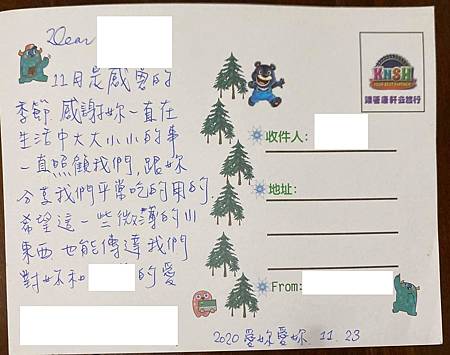 Dear
11月是感恩的
季節 感謝妳一直在
生活中大大小小的事
一直照顧我們,跟妳
分享我們平常吃的用的.
希望這一些微薄的小
東西 也能傳達我們
對妳和 的愛
KNSH
YOUR BEST PARTNER
跟著康軒去旅行
收件人:
地址:
From:
2020 愛妳愛妳 11.23